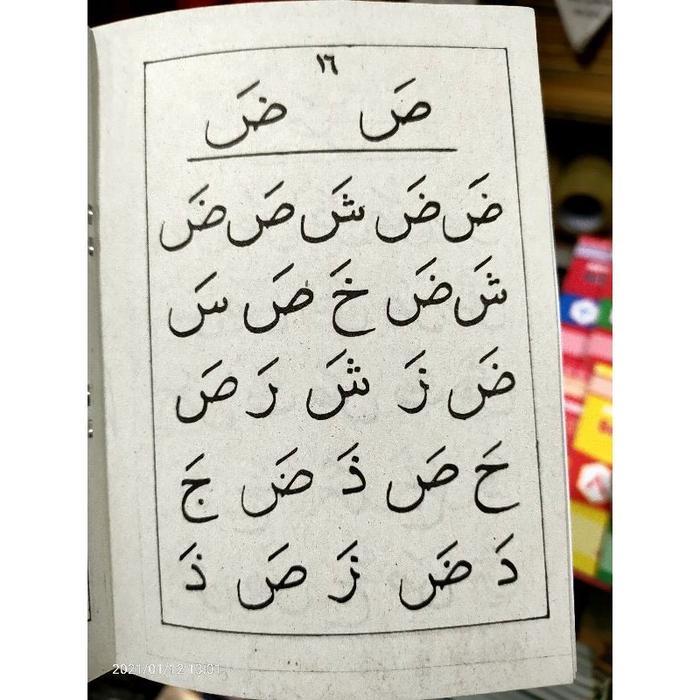 ١٦
صَ ضَ
ضَ ضَ شَ صَ ضَ
شَ ضَ خَ صَ سَ
ضَ زَ شَ رَ صَ
حَ صَ ذَ ضَ جَ
دَ ضَ زَ صَ ذَ
2021/01/12 13:01